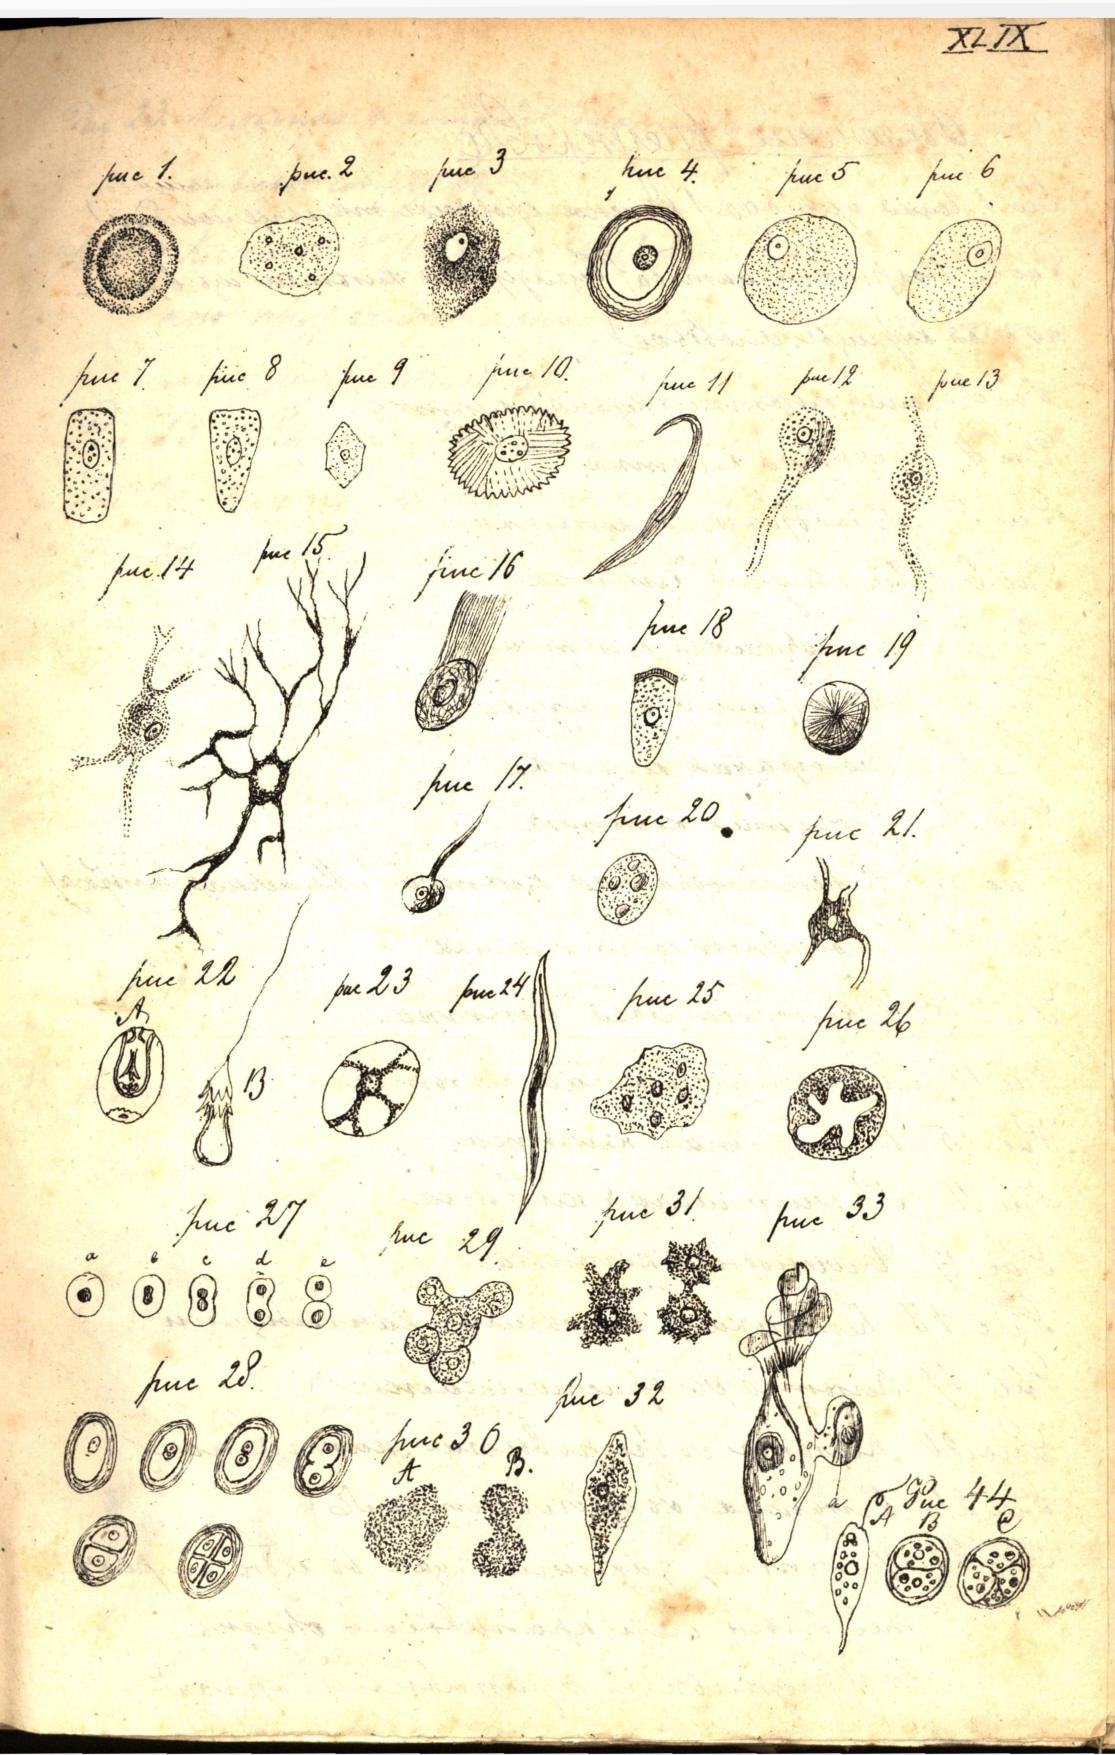 XLIX
рис 1. рис. 2 рис 3 рис 4. рис 5 рис 6
рис 7 рис 8 рис 9 рис 10. рис 11 рис 12 рис 13
рис. 14 рис 15. рис 16
рис 18 рис 19
рис 17.
рис 20 рис 21.
рис 22 рис 23 рис 24 рис 25 рис 26
A
B
рис 27 рис 29 рис 31. рис 33
a b c d e
рис 28. рис 30 рис 32
A B.
a
Рис 44
A B C